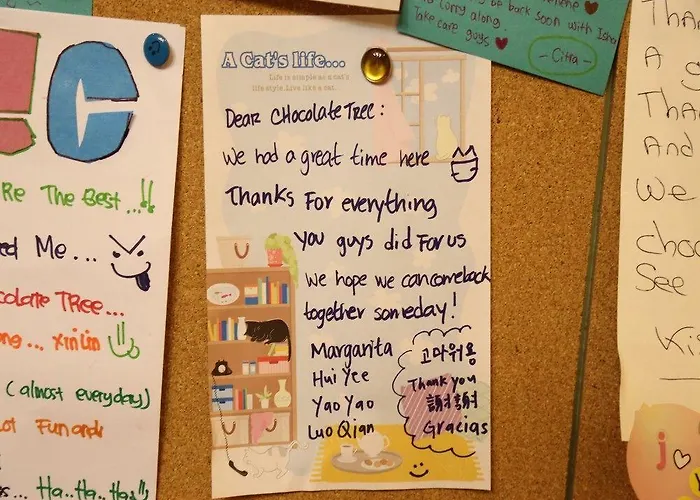 be back soon with
worry along.
Take care guys
- Citra -
A Cat's life...
Life is simple as a cat's
life style. Live like a cat.
Dear CHocolate Tree :
We had a great time here
Thanks For everything
you guys did For us
We hope we can comeback
together someday!
Margarita
Hui Yee
Yao Yao
Luo Qian
고마워용
Thank you
謝謝
Gracias
C
Re The Best...!!
Me...
colate TRee...
xinLin
(almost everyday)
Ha..Ha..Ha..
Tha
A
Tha
And
We
choc
See
Ki